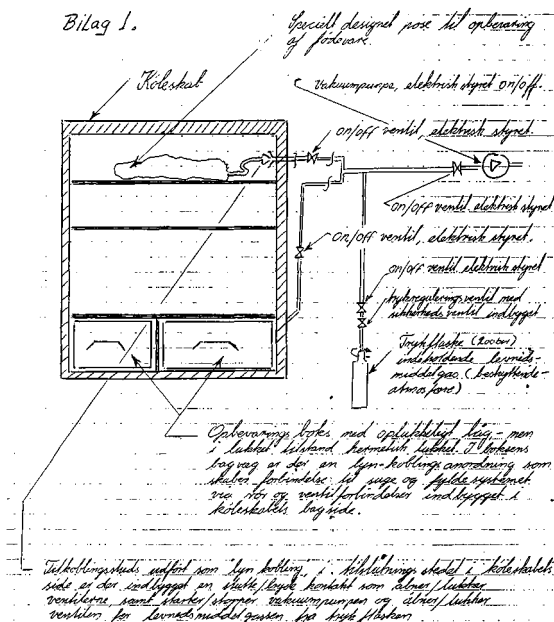 Bilag 1.
Speciell designet pose til opbevaring
af fødevare.
Køleskab
vakuumpumpe, elektrisk styret on/off.
on/off ventil, elektrisk styret.
on/off ventil elektrisk styret
on/off ventil, elektrisk styret.
on/off ventil elektrisk styret
trykreguleringsventil med
sikkerhedsventil indbygget
Trykflaske (200bar)
indeholdende levneds-
middelgas (beskyttende-
atmosfære)
Opbevarings boks med oplukkeligt låg - men
i lukket tilstand hermetisk lukket. I boksens
bagvæg er der en lyn-koblings anordning som
skaber forbindelse til suge og fylde systemet
via rør og ventilforbindelser indbygget i
køleskabets bagside.
Tilkoblingsstuds udført som lyn kobling, i tilslutnings stedet i køleskabets
side er der indbygget en slutte/bryde kontakt som åbner/lukker
ventilerne samt starter/stopper vakuumpumpen og åbner/lukker
ventilen for levnedsmiddelgassen fra tryk flasken